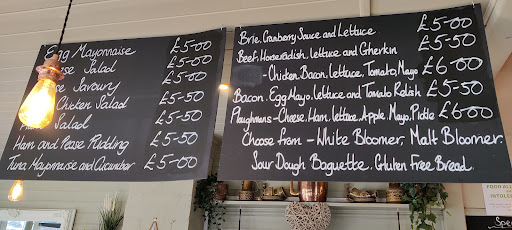 Egg Mayonnaise £5-00
Salad £5-50
Savoury £5-00
Chicken Salad £5-50
Salad £5-50
Ham and Pease Pudding £5-50
Tuna, Mayonnaise and Cucumber £5-00
Brie, Cranberry Sauce and Lettuce £5-00
Beef, Horseradish, Lettuce and Gherkin £5-50
- Chicken, Bacon, Lettuce, Tomato, Mayo £6-00
Bacon, Egg Mayo, Lettuce and Tomato Relish £5-50
Ploughmans - Cheese, Ham, Lettuce, Apple, Mayo, Pickle £6-00
Choose from - White Bloomer, Malt Bloomer
Sour Dough Baguette, Gluten Free Bread
FOOD